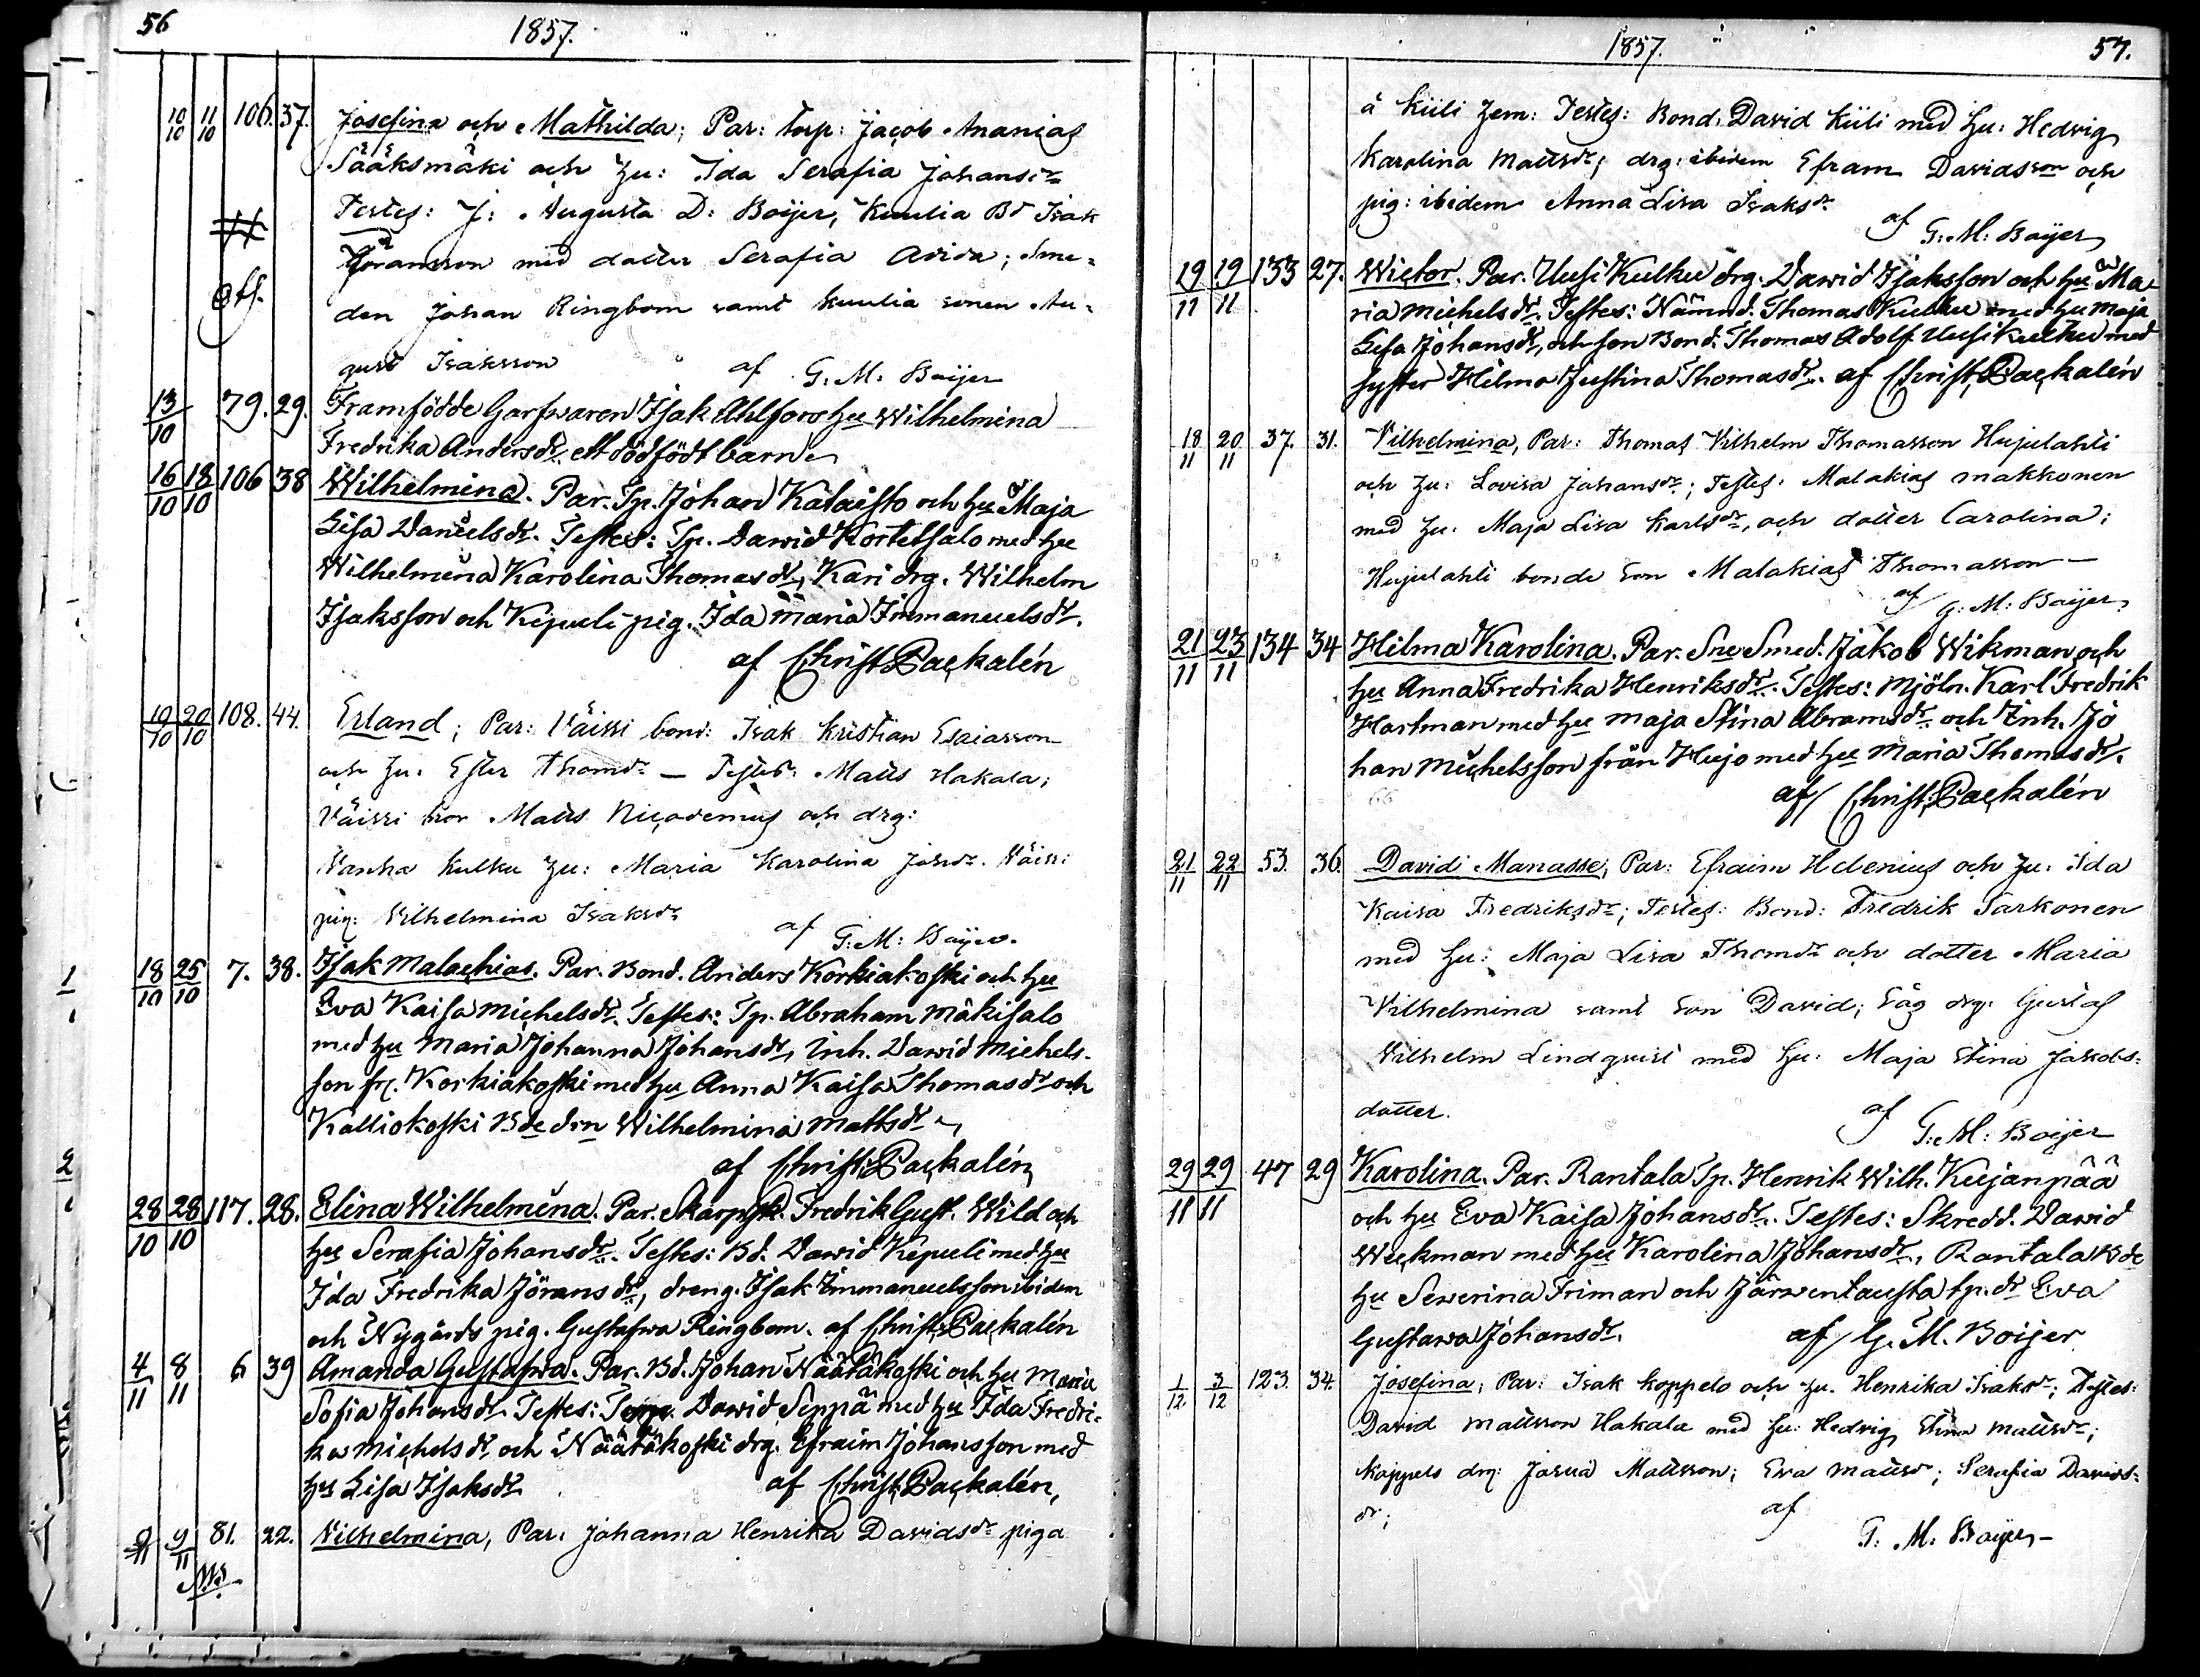 56
1857.
10/10 11/10 106. 37. Josefina och Mathilda; Par: torp: Jacob Ananias
Sääksmäki och hu: Ida Serafia Johansdr
Testes: J: Augusta D: Boijer, Kuulia Bd Isak
Göransson med dotter Serafia Avida; Sme-
den Johan Ringbom samt Kuulia sonen Au-
gust Isaksson af G: M: Boijer
13/10 79. 29. Framfödde Garfwaren Isak Ahlfors hu Wilhelmina
Fredrika Andersdr ett dödfödt barn
16/10 18/10 106 38 Wilhelmina. Par. Tp. Johan Kalaisto och hu Maja
Lisa Danielsdr. Testes: Tp. Dawid Kortetsalo med hu
Wilhelmina Karolina Thomasdr, Kari drg. Wilhelm
Isaksson och Kipueli pig. Ida Maria Immanuelsdr.
af Christ. Packalén
19/10 20/10 108. 44. Erland; Par: Väissi bond: Isak Kristian Esaiasson
och hu: Ester Thomdr — Testes: Matts Hakala;
Väissi bror Matts Nicodemus och drg:
Vanha Kulku hu: Maria Karolina Johsdr. Väissi
pig: Vilhelmina Isaksdr af G: M: Boijer.
1
18/10 25/10 7. 38. Isak Malachias. Par. Bond. Anders Korkiakoski och hu
Eva Kaisa Michelsdr. Testes: Tp. Abraham Mäkisalo
med hu Maria Johanna Johansdr, Inh. Dawid Michels-
son fr. Korkiakoski med hu Anna Kaisa Thomasdr och
Kalliokoski Bde drn Wilhelmina Mattsdr
af Christ. Packalén
2
28/10 28/10 117. 28. Elina Wilhelmina. Par. Skarpsk. Fredrik Gust. Wild och
hu Serafia Johansdr. Testes: Bd. Dawid Kipueli med hu
Ida Fredrika Jöransdr, dreng. Isak Immanuelsson ibidem
och Nygårds pig. Gustafwa Ringbom. af Christ. Packalén
4/11 8/11 6 39 Amanda Gustafwa. Par. Bd. Johan Näätäkoski och hu Maria
Sofia Johansdr. Testes: Dawid Seppä med hu Ida Fredri-
ka Michelsdr och Näätäkoski drg. Efraim Johansson med
hu Lisa Isaksdr af Christ. Packalén,
9/11 9/11 81. 22. Vilhelmina, Par: Johanna Henrika Davidsdr piga
1857.
57.
å Küli hem: Testes: Bond: David Küli med hu: Hedvig
Karolina Mattsdr; drg: ibidem Efram Davidsson och
pig: ibidem Anna Lisa Isaksdr
af G: M: Boijer
19/11 19/11 133 27. Wictor. Par. Uusi Kulku drg. Dawid Isaksson och hu Ma-
ria Michelsdr. Testes: Nämnd. Thomas Kulku med hu Maja
Lisa Johansdr, och son Bond. Thomas Adolf Uusi Kulku med
syster Hilma Justina Thomasdr. af Christ. Packalén
18/11 20/11 37. 31. Vilhelmina, Par: Thomas Vilhelm Thomasson Hujulahti
och hu: Lovisa Johansdr; Testes: Malakias Makkonen
med hu: Maja Lisa Karlsdr, och dotter Carolina;
Hujulahti bonde son Malakias Thomasson —
af G: M: Boijer
21/11 23/11 134 34 Hilma Karolina. Par. Sne Smed. Jakob Wikman och
hu Anna Fredrika Henriksdr. Testes: Mjöln. Karl Fredrik
Hartman med hu Maja Stina Abramsdr och Inh. Jo
han Michelsson från Hujo med hu Maria Thomasdr.
af Christ. Packalén
21/11 22/11 53. 36. David Manasse, Par: Efraim Helenius och hu: Ida
Kaisa Fredriksdr; Testes: Bond: Fredrik Sarkonen
med hu: Maja Lisa Thomdr och dotter Maria
Vilhelmina samt son David; Såg drg: Gustaf
Vilhelm Lindqvist med hu: Maja Stina Jakobs-
dotter. af G: M: Boijer
29/11 29/11 47 29 Karolina. Par. Rantala Tp. Henrik Wilh. Kujanpää
och hu Eva Kaisa Johansdr. Testes: Skredd. Dawid
Weckman med hu Karolina Johansdr, Rantala Bde
hu Sewerina Friman och Järwentausta tp. dr Eva
Gustawa Johansdr. af G. M. Boijer
1/12 3/12 123. 34. Josefina; Par: Isak Koppelo och hu. Henrika Isaksdr; Testes:
David Mattsson Hakala med hu: Hedvig Stina Mattsdr;
Koppelo drg: Josua Mattsson; Eva Mattsdr; Serafia Davids-
dr; af
G: M: Boijer —